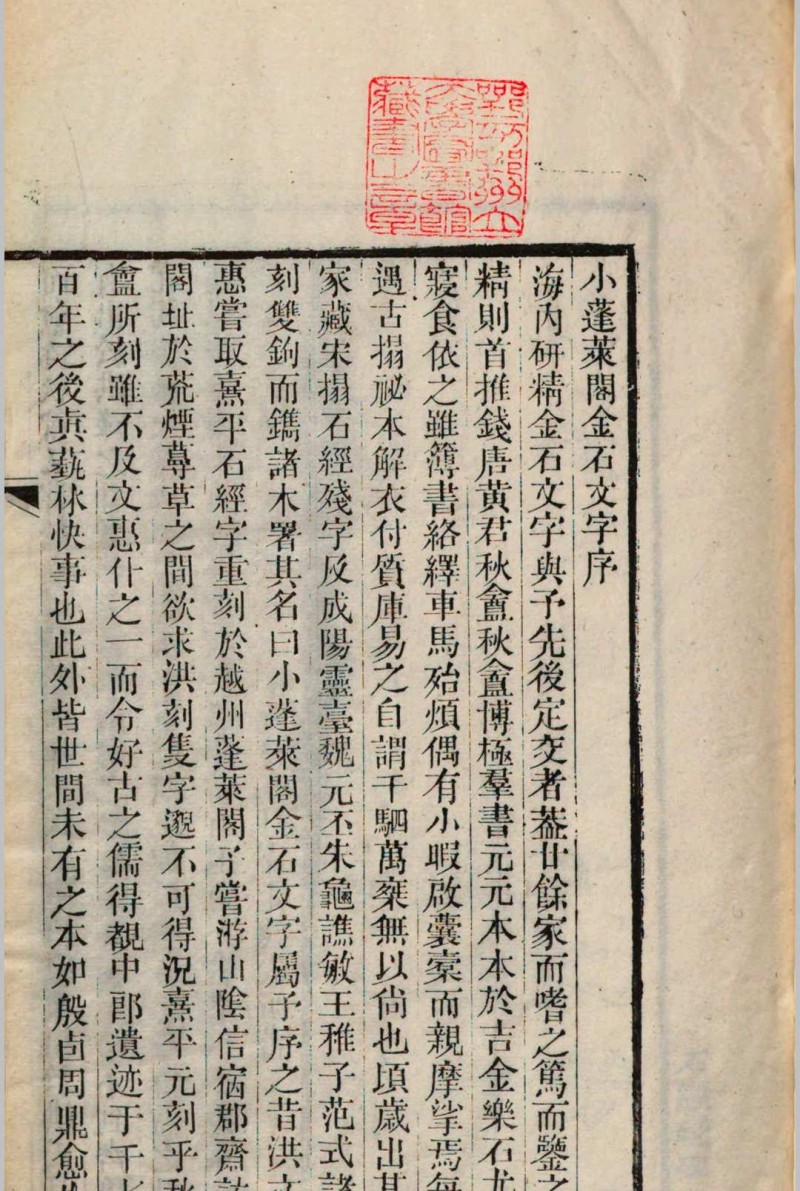 小蓬萊閣金石文字序
海內研精金石文字與予先後定交者葢廿餘家而嗜之篤而鑒之
精則首推錢唐黃君秋盦秋盦博極羣書元元本本於吉金樂石尤
寢食依之雖簿書絡繹車馬殆煩偶有小暇啟囊橐而親摩挲焉每
遇古搨祕本解衣付質庫易之自謂千駟萬乘無以尙也頃歲出其
家藏宋搨石經殘字及成陽靈臺魏元丕朱龜譙敏王稚子范式諸
刻雙鉤而鐫諸木署其名曰小蓬萊閣金石文字屬予序之昔洪文
惠嘗取熹平石經字重刻於越州蓬萊閣予嘗游山陰信宿郡齋訪
閣址於荒煙蔓草之間欲求洪刻隻字邈不可得況熹平元刻乎秋
盦所刻雖不及文惠什之一而令好古之儒得覩中郎遺迹于千七
百年之後眞藝林快事也此外皆世間未有之本如殷卣周鼎愈少